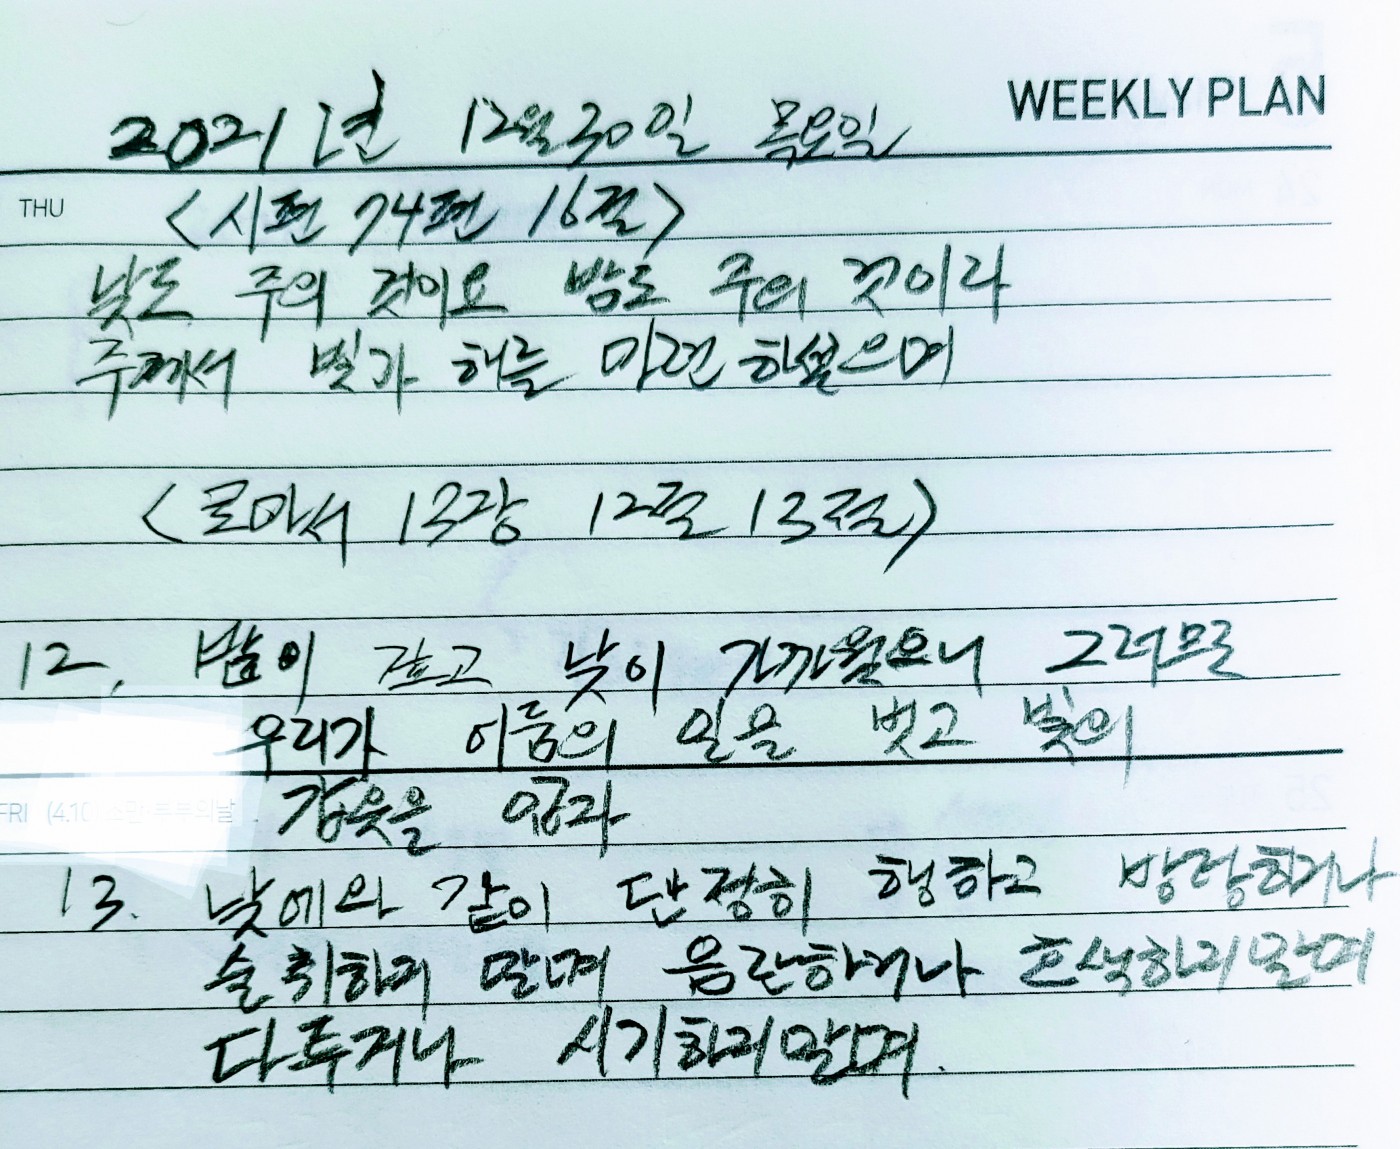 WEEKLY PLAN
2021년 12월 30일 목요일
THU
<시편 74편 16절>
낮도 주의 것이요 밤도 주의 것이라
주께서 빛과 해를 마련하셨으며
<로마서 13장 12절 13절>
12. 밤이 깊고 낮이 가까웠으니 그러므로
우리가 어둠의 일을 벗고 빛의
FRI (4.10) 소만·부부의날
갑옷을 입자
13. 낮에와 같이 단정히 행하고 방탕하거나
술취하지 말며 음란하거나 호색하지말며
다투거나 시기하지말며.